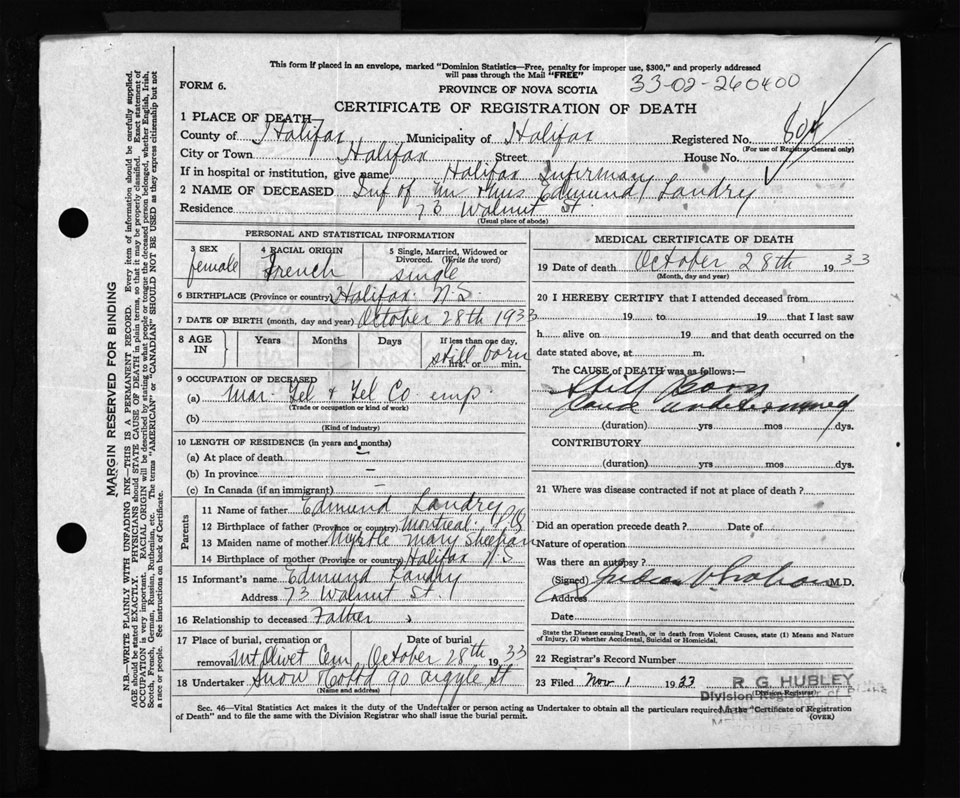 This form if placed in an envelope, marked "Dominion Statistics—Free, penalty for improper use, $300," and properly addressed
will pass through the Mail "FREE"
FORM 6.
PROVINCE OF NOVA SCOTIA
33-02-260400
CERTIFICATE OF REGISTRATION OF DEATH
1 PLACE OF DEATH
County of Halifax Municipality of Halifax Registered No. 804
(For use of Registrar General only)
City or Town Halifax Street House No.
If in hospital or institution, give name Halifax Infirmary
2 NAME OF DECEASED Inf of Mr & Mrs Edmund Landry
Residence 73 Walnut St.
(Usual place of abode)
PERSONAL AND STATISTICAL INFORMATION
3 SEX female
4 RACIAL ORIGIN French
5 Single, Married, Widowed or
Divorced. (Write the word)
single
6 BIRTHPLACE (Province or country) Halifax N.S.
7 DATE OF BIRTH (month, day and year) October 28th 1933
8 AGE IN Years Months Days If less than one day,
still born
hrs. or min.
9 OCCUPATION OF DECEASED
(a) Mar Tel & Tel Co emp
(Trade or occupation or kind of work)
(b)
(Kind of industry)
10 LENGTH OF RESIDENCE (in years and months)
(a) At place of death
(b) In province —
(c) In Canada (if an immigrant) —
Parents
11 Name of father Edmund Landry
12 Birthplace of father (Province or country) Montreal P.Q
13 Maiden name of mother Myrtle Mary Sheehan
14 Birthplace of mother (Province or country) Halifax N.S
15 Informant's name Edmund Landry
Address 73 Walnut St.
16 Relationship to deceased Father
17 Place of burial, cremation or Date of burial
removal Mt Olivet Cem October 28th 1933
18 Undertaker Snow & Co Ltd 90 Argyle St
(Name and address)
MEDICAL CERTIFICATE OF DEATH
19 Date of death October 28th 1933
(Month, day and year)
20 I HEREBY CERTIFY that I attended deceased from
19 to 19 that I last saw
h alive on 19 and that death occurred on the
date stated above, at m.
The CAUSE OF DEATH was as follows:—
Still Born
Cause undetermined
(duration) yrs mos dys.
CONTRIBUTORY
(duration) yrs. mos. dys.
21 Where was disease contracted if not at place of death?
Did an operation precede death? Date of
Nature of operation
Was there an autopsy?
(Signed) M.D.
Address
Date
State the Disease causing Death, or in death from Violent Causes, state (1) Means and Nature
of Injury, (2) whether Accidental, Suicidal or Homicidal.
22 Registrar's Record Number
23 Filed Nov 1 1933 R. G. HUBLEY
Division Registrar
Sec. 46—Vital Statistics Act makes it the duty of the Undertaker or person acting as Undertaker to obtain all the particulars required in the "Certificate of Registration
of Death" and to file the same with the Division Registrar who shall issue the burial permit.
(OVER)
MARGIN RESERVED FOR BINDING
N.B.—WRITE PLAINLY WITH UNFADING INK—THIS IS A PERMANENT RECORD. Every item of information should be carefully supplied.
AGE should be stated EXACTLY. PHYSICIANS should STATE CAUSE OF DEATH in plain terms, so that it may be properly classified. Exact statement of
OCCUPATION is very important. RACIAL ORIGIN will be described by stating to what people or tongue the deceased person belonged, whether English, Irish,
Scotch, French, German, Russian, Ruthenian, etc. The terms "AMERICAN" or "CANADIAN" SHOULD NOT BE USED as they express citizenship but not
a race or people. See instructions on back of Certificate.